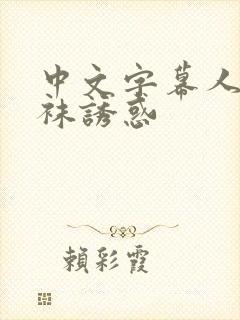 中文字幕人
袜誘惑
賴彩霞